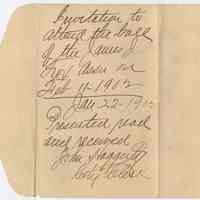 Invitation to
attend the ball
of the James
Troy Assn on
Feb 11-1902
Jan 22-1902
Presented read
and received
John Haggerty
City Clerk